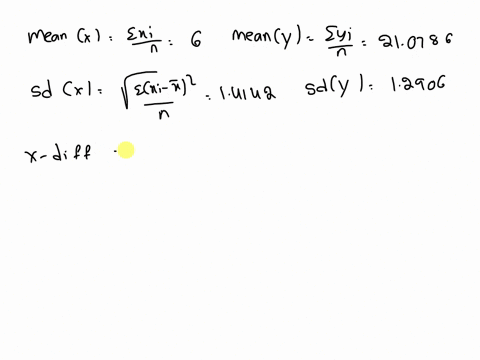 mean (x) = Σxi/n = 6 mean(y) = Σyi/n = 21.0786
sd (x) = √Σ(xi-x̄)²/n = 1.4142 sd(y) = 1.2906
x-diff -